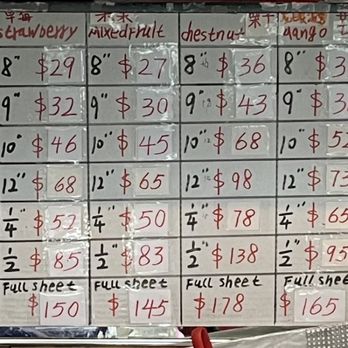 strawberry mixedfruit chestnut mango
8" $29 8" $27 8" $36 8" $3
9" $32 9" $30 9" $43 9" $3
10" $46 10" $45 10" $68 10" $5
12" $68 12" $65 12" $98 12" $73
1/4" $52 1/4" $50 1/4" $78 1/4" $65
1/2" $85 1/2" $83 1/2" $138 1/2" $95
Full sheet Full sheet Full sheet Full sheet
$150 $145 $178 $165